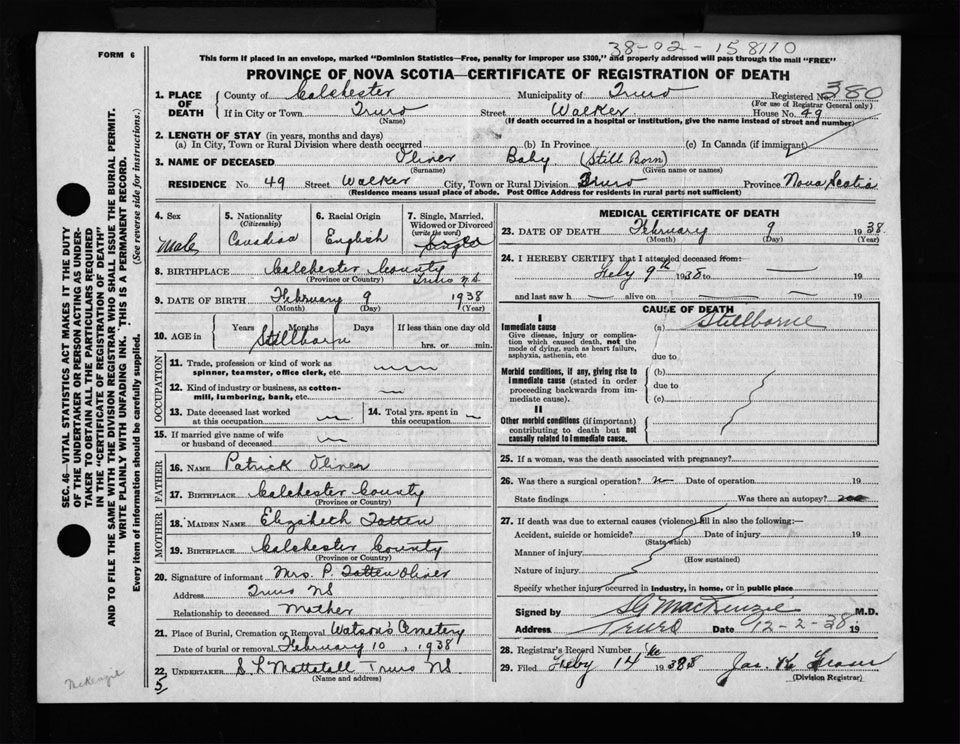 38-02-158110
FORM 6
This form if placed in an envelope, marked "Dominion Statistics—Free, penalty for improper use $300," and properly addressed will pass through the mail "FREE"
PROVINCE OF NOVA SCOTIA—CERTIFICATE OF REGISTRATION OF DEATH
1. PLACE OF DEATH
County of Colchester Municipality of Truro Registered No. 380
(For use of Registrar General only)
If in City or Town Truro Street Walker House No. 49
(Name) (If death occurred in a hospital or institution, give the name instead of street and number)
2. LENGTH OF STAY (in years, months and days)
(a) In City, Town or Rural Division where death occurred (b) In Province (c) In Canada (if immigrant)
3. NAME OF DECEASED Oliver Baby (Still Born)
(Surname) (Given name or names)
RESIDENCE No. 49 Street Walker City, Town or Rural Division Truro Province Nova Scotia
(Residence means usual place of abode. Post Office Address for residents in rural parts not sufficient)
4. Sex
Male
5. Nationality
(Citizenship)
Canadian
6. Racial Origin
English
7. Single, Married, Widowed or Divorced
(write the word)
Single
8. BIRTHPLACE Colchester County
(Province or Country) Truro N.S.
9. DATE OF BIRTH February 9 1938
(Month) (Day) (Year)
10. AGE in Years Months Days If less than one day old
Stillborn hrs. or min.
OCCUPATION
11. Trade, profession or kind of work as spinner, teamster, office clerk, etc.
12. Kind of industry or business, as cotton-mill, lumbering, bank, etc.
13. Date deceased last worked at this occupation
14. Total yrs. spent in this occupation
15. If married give name of wife or husband of deceased
FATHER
16. NAME Patrick Oliver
17. BIRTHPLACE Colchester County
(Province or Country)
MOTHER
18. MAIDEN NAME Elizabeth Totten
19. BIRTHPLACE Colchester County
(Province or Country)
20. Signature of informant Mrs. P. Totten Oliver
Address Truro NS
Relationship to deceased Mother
21. Place of Burial, Cremation or Removal Watson's Cemetery
Date of burial or removal February 10, 1938
22. UNDERTAKER S. L. Mattatall Truro NS
(Name and address)
5
MEDICAL CERTIFICATE OF DEATH
23. DATE OF DEATH February 9 1938
(Month) (Day) (Year)
24. I HEREBY CERTIFY that I attended deceased from:
Feby 9th 1938 to 19
and last saw h alive on 19
CAUSE OF DEATH
I
Immediate cause (a) Stillborne
Give disease, injury or complication which caused death, not the mode of dying, such as heart failure, asphyxia, asthenia, etc
due to
Morbid conditions, if any, giving rise to immediate cause (stated in order proceeding backwards from immediate).
(b)
due to
(c)
II
Other morbid conditions (if important) contributing to death but not causally related to immediate cause.
25. If a woman, was the death associated with pregnancy?
26. Was there a surgical operation? no Date of operation 19
State findings Was there an autopsy?
27. If death was due to external causes (violence) fill in also the following:—
Accident, suicide or homicide? Date of injury 19
(State which)
Manner of injury
(How sustained)
Nature of injury
Specify whether injury occurred in industry, in home, or in public place
Signed by SG MacKenzie M.D.
Address Truro Date 12-2-38 19
28. Registrar's Record Number
29. Filed Feby 14 1938
(Division Registrar)
SEC. 46—VITAL STATISTICS ACT MAKES IT THE DUTY OF THE UNDERTAKER OR PERSON ACTING AS UNDERTAKER TO OBTAIN ALL THE PARTICULARS REQUIRED IN THE "CERTIFICATE OF REGISTRATION OF DEATH"
AND TO FILE THE SAME WITH THE DIVISION REGISTRAR WHO SHALL ISSUE THE BURIAL PERMIT.
WRITE PLAINLY WITH UNFADING INK. THIS IS A PERMANENT RECORD.
Every item of information should be carefully supplied. (See reverse side for instructions.)
McKenzie